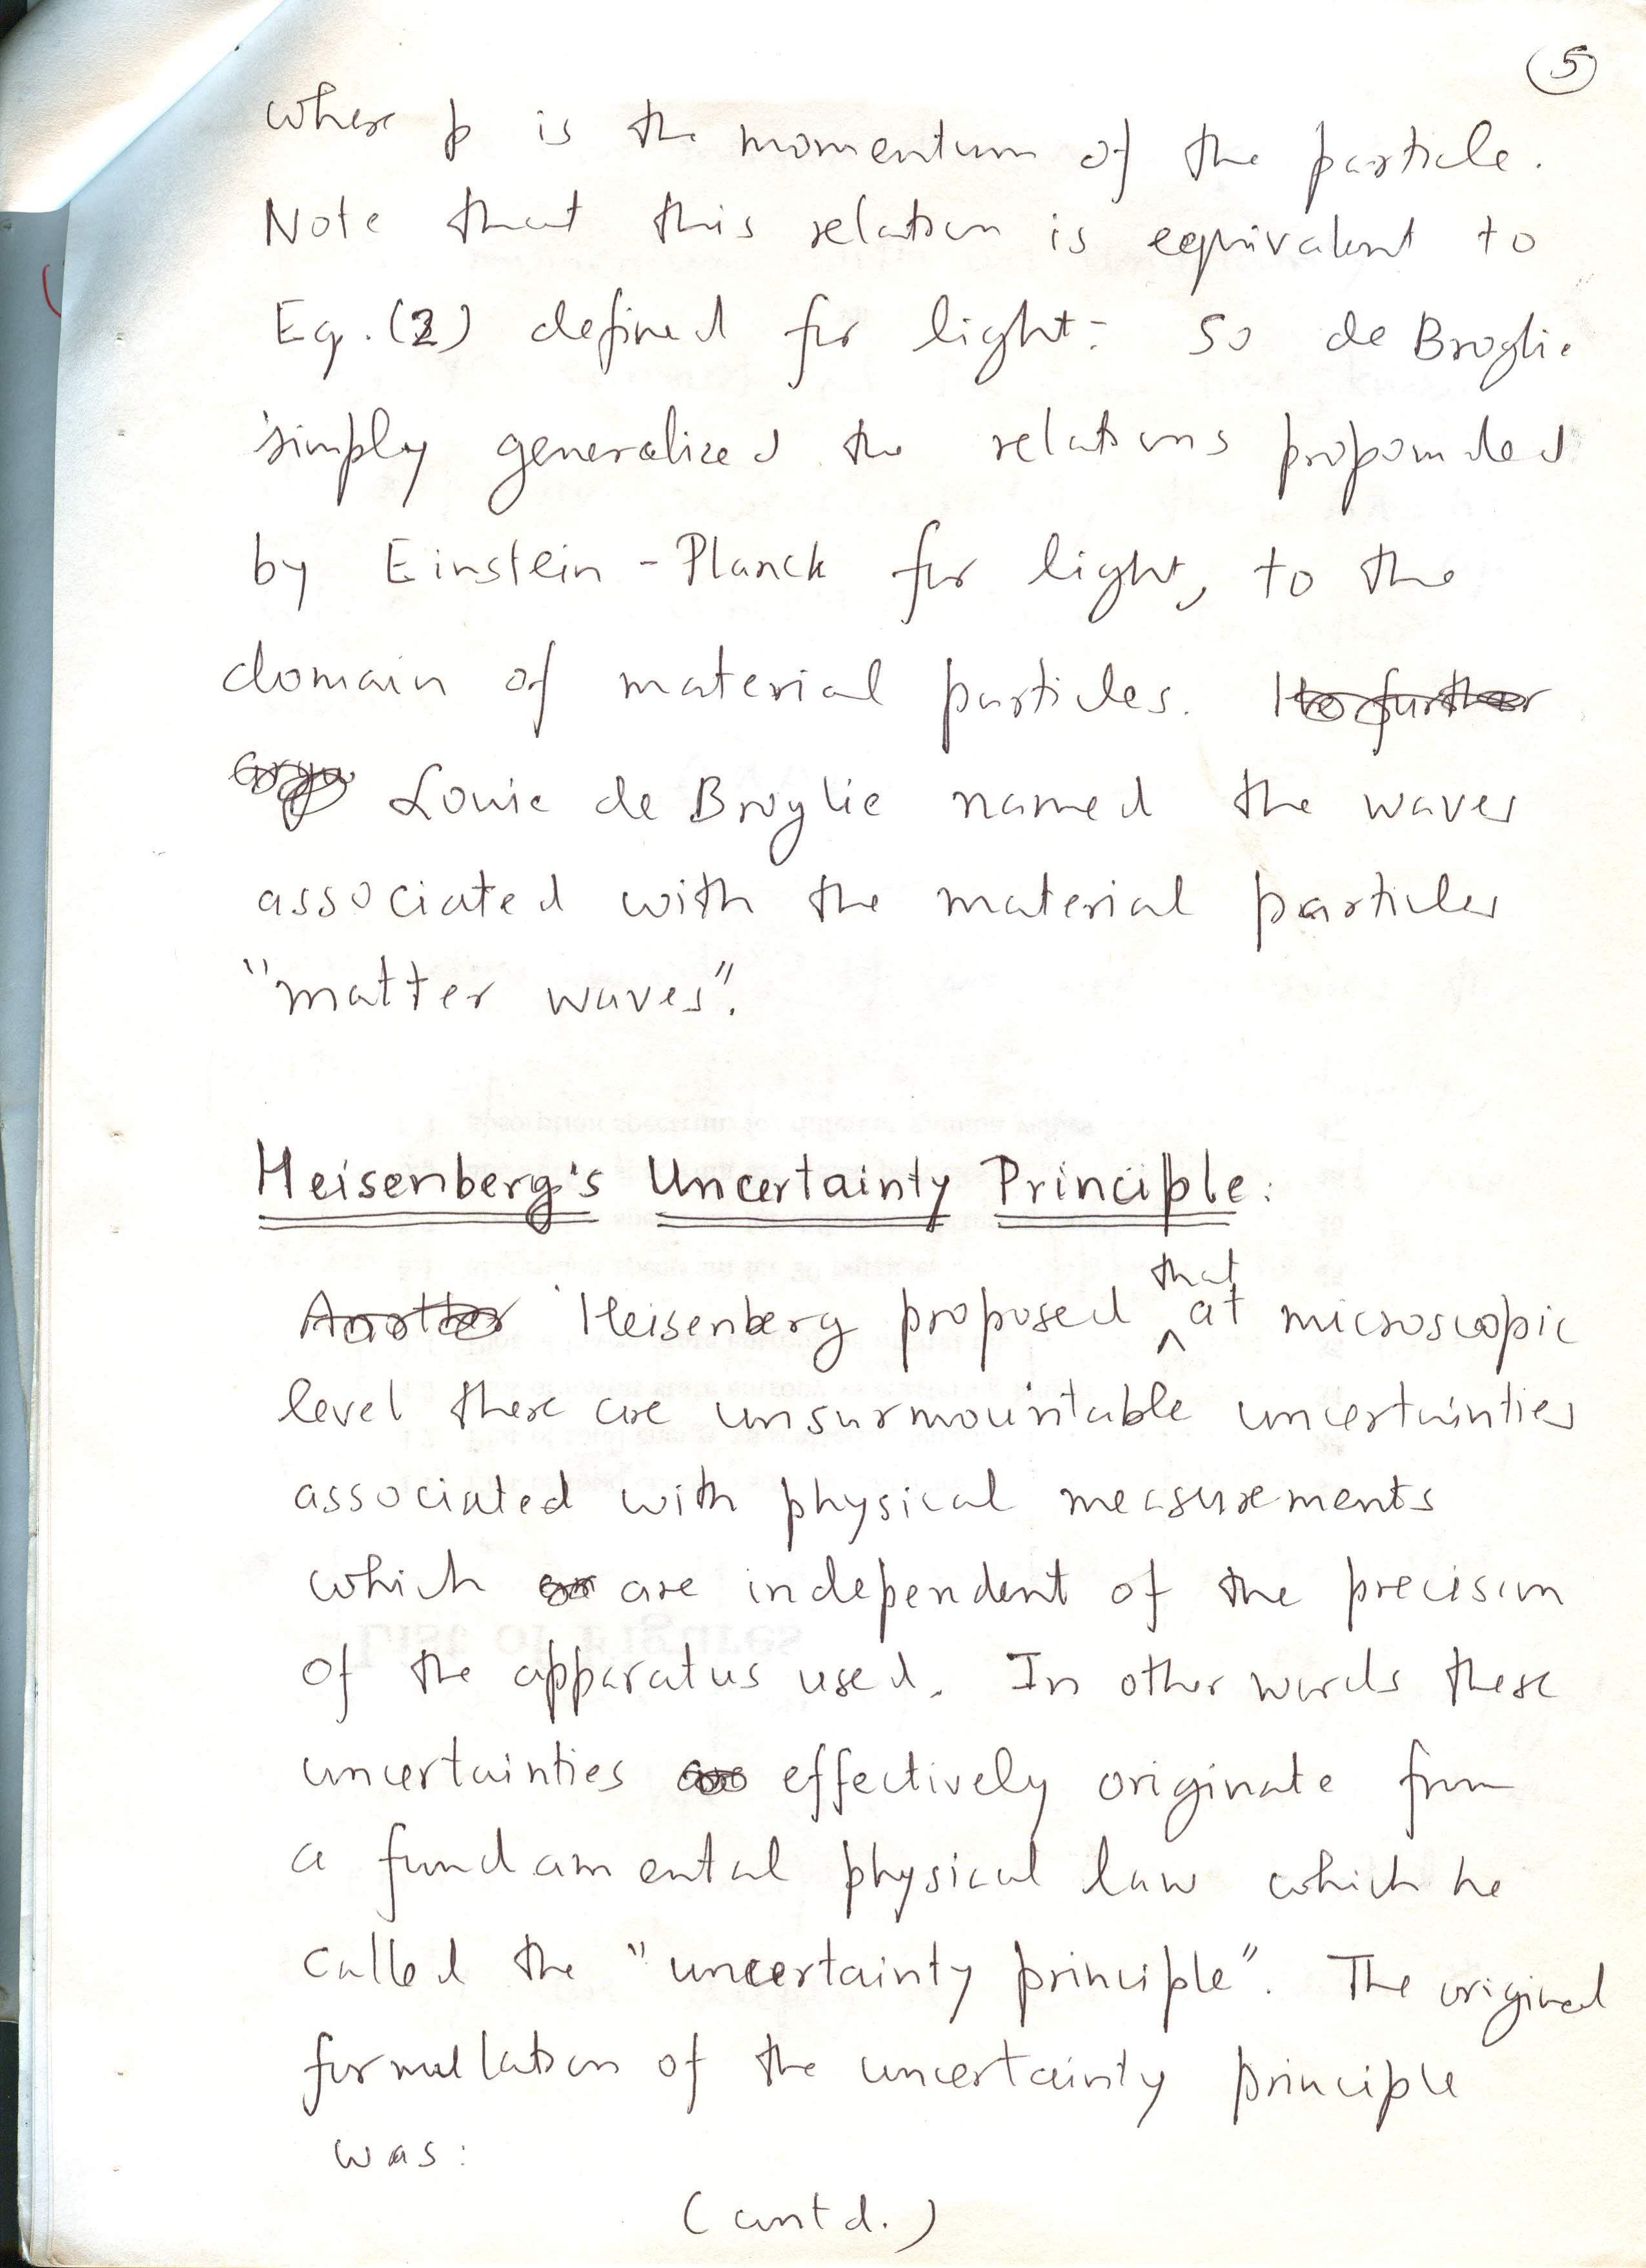 5
where p is the momentum of the particle.
Note that this relation is equivalent to
Eq. (2) defined for light. So de Broglie
simply generalized the relations propounded
by Einstein - Planck for light, to the
domain of material particles. He further
argu Louie de Broglie named the waves
associated with the material particles
"matter waves".
Heisenberg's Uncertainty Principle:
Another Heisenberg proposed that at microscopic
level there are unsurmountable uncertainties
associated with physical measurements
which are independent of the precision
of the apparatus used. In other words these
uncertainties are effectively originate from
a fundamental physical law which he
called the "uncertainty principle". The original
formulation of the uncertainty principle
was:
(contd.)